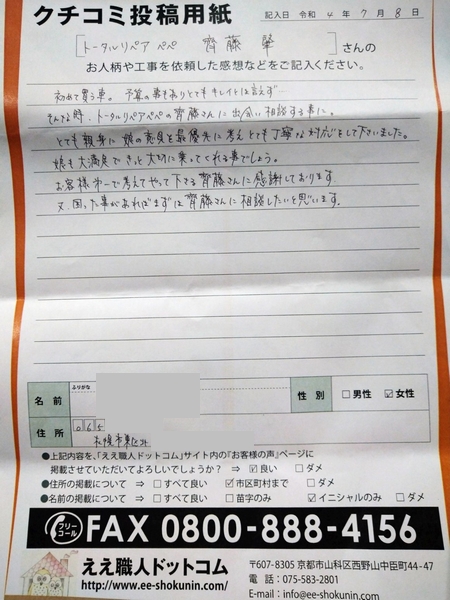 クチコミ投稿用紙
記入日 令和 4 年 7 月 8 日
[トータルリペア ペペ 齊藤 肇 ] さんの
お人柄や工事を依頼した感想などをご記入ください。
初めて買う車。予算の事もありとてもキレイとは言えず…
そんな時、トータルリペアペペの齊藤さんに出会い相談する事に。
とても親身に娘の意見を最優先に考えとても丁寧な対応をして下さいました。
娘も大満足できっと大切に乗ってくれる事でしょう。
お客様第一で考えてやって下さる齊藤さんに感謝しております。
又、困った事があればまずは齊藤さんに相談したいと思います。
ふりがな
名前
性別 □男性 ☑女性
住所
065
札幌市東区
●上記内容を、「ええ職人ドットコム」サイト内の『お客様の声』ページに
掲載させていただいてよろしいでしょうか? → ☑良い □ダメ
●住所の掲載について → □すべて良い ☑市区町村まで □ダメ
●名前の掲載について → □すべて良い □苗字のみ ☑イニシャルのみ □ダメ
フリーコール FAX 0800-888-4156
ええ職人ドットコム
http://www.ee-shokunin.com/
〒607-8305 京都市山科区西野山中臣町44-47
電話:075-583-2801
E-mail:info@ee-shokunin.com